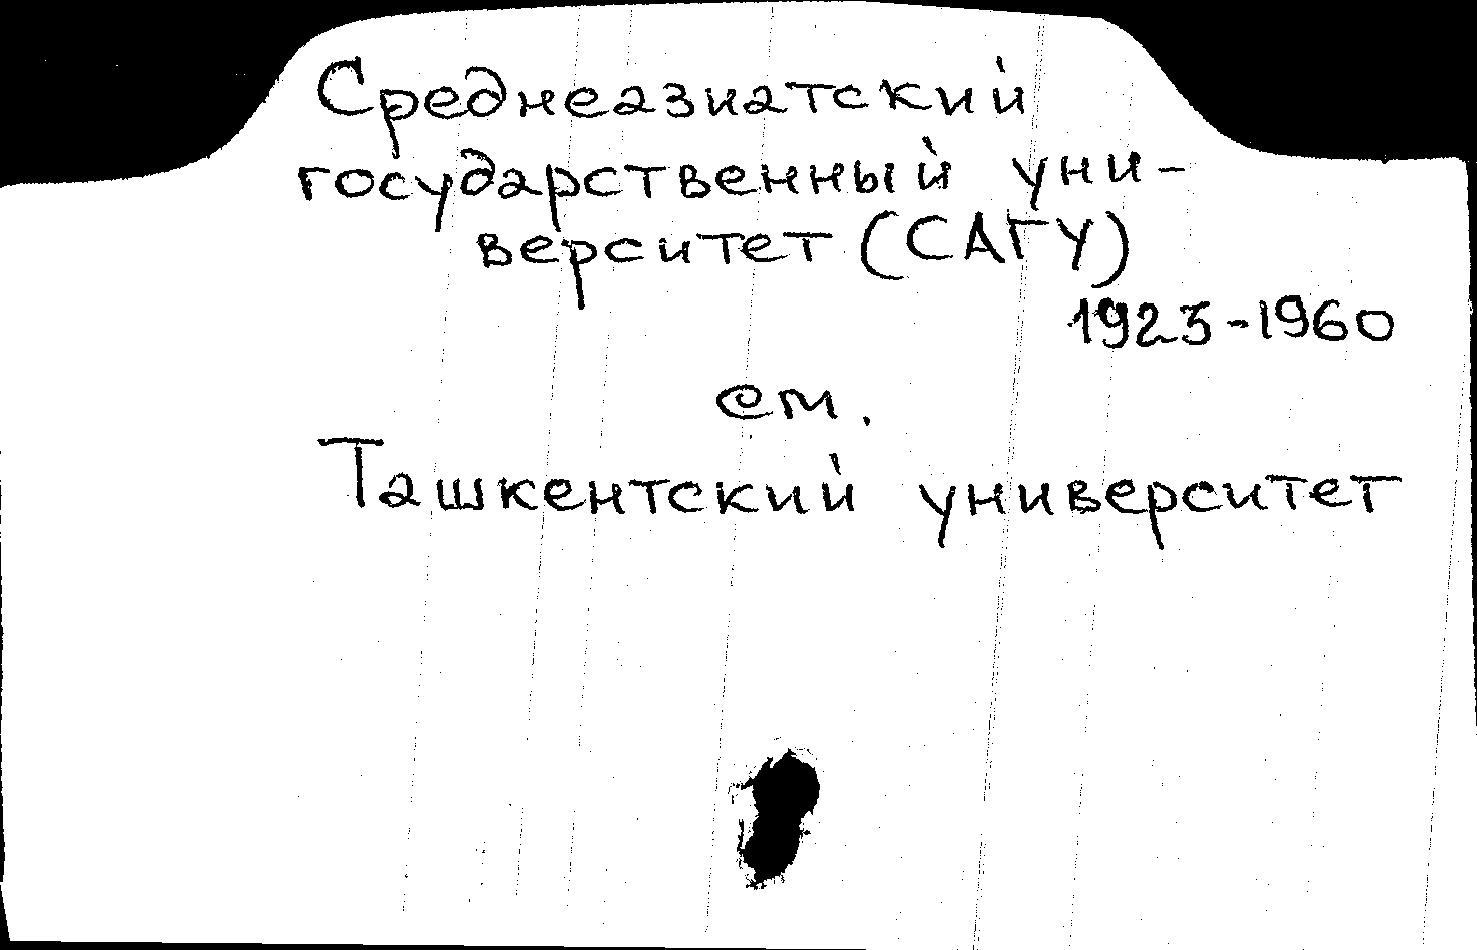 Среднеазиатский
государственный уни-
верситет (САГУ)
1923-1960
см.
Ташкентский университет